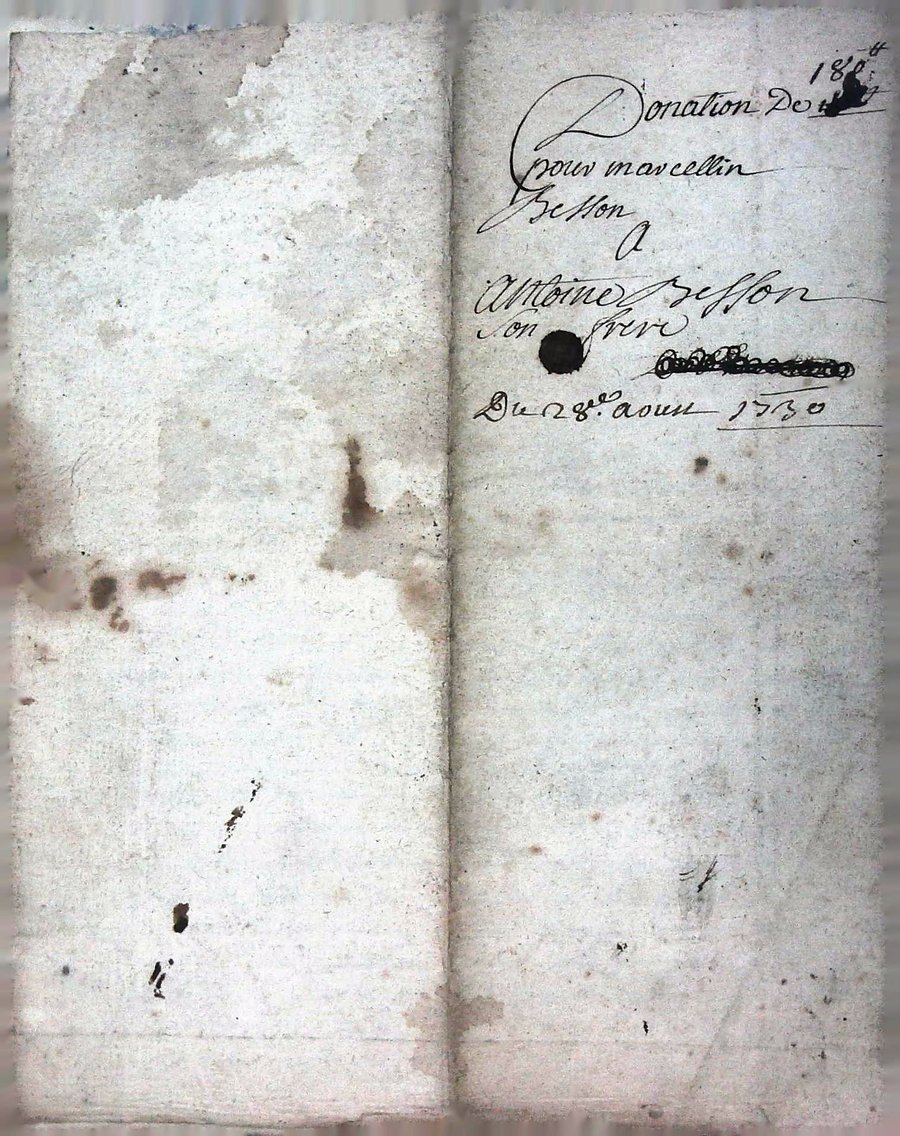 180
Donation De
pour marcellin
Besson
A
Antoine Besson
son frere
Du 28e. aoust 1730